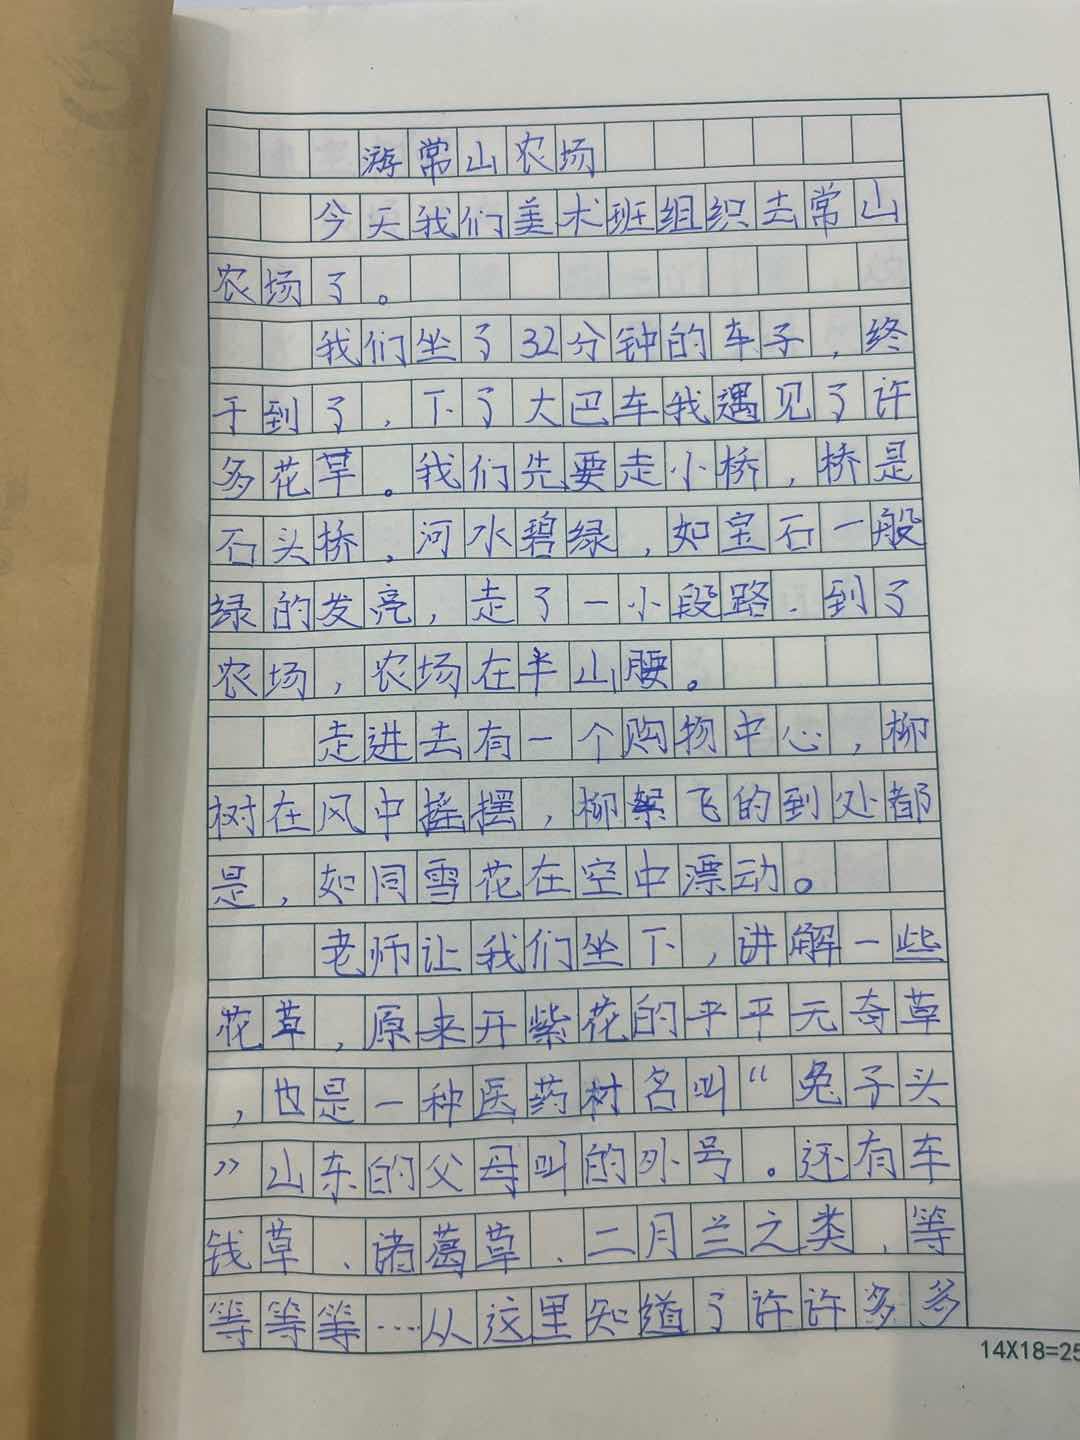 游常山农场
今天我们美术班组织去常山
农场了。
我们坐了32分钟的车子,终
于到了,下了大巴车我遇见了许
多花草。我们先要走小桥,桥是
石头桥,河水碧绿,如宝石一般
绿的发亮,走了一小段路、到了
农场,农场在半山腰。
走进去有一个购物中心,柳
树在风中摇摆,柳絮飞的到处都
是,如同雪花在空中漂动。
老师让我们坐下,讲解一些
花草,原来开紫花的平平无奇草
,也是一种医药材名叫“兔子头
”山东的父母叫的外号。还有车
钱草、诸葛草、二月兰之类,等
等等等…从这里知道了许许多多
14X18=25